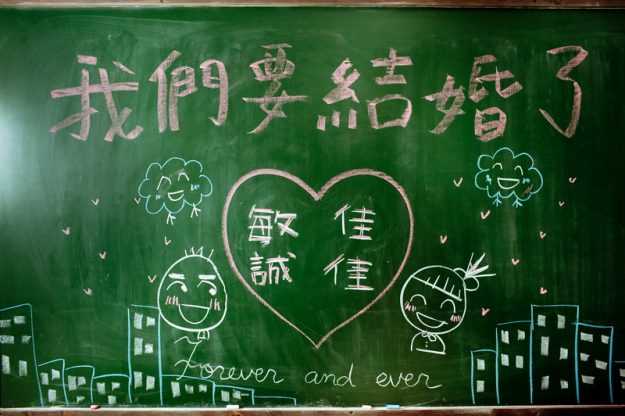 我們要結婚了
敏 佳
誠 佳
Forever and ever